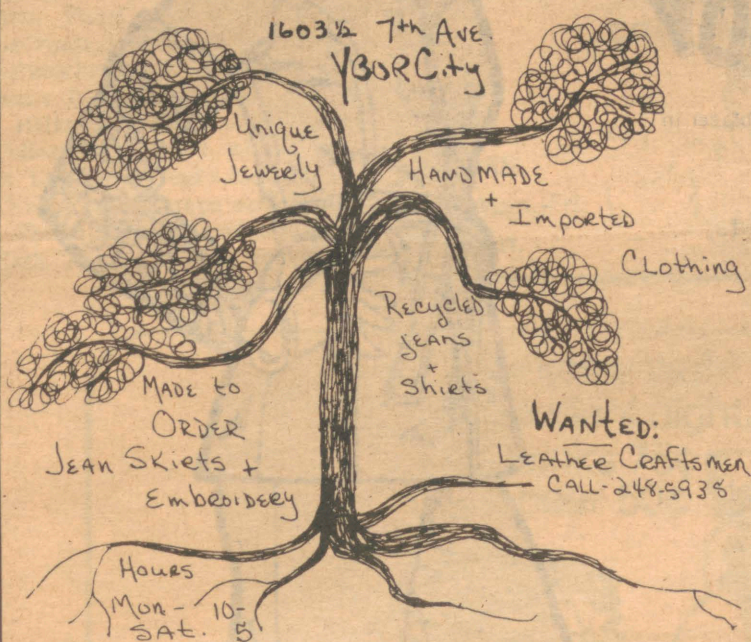 1603 ½ 7th Ave.
YBOR City
Unique
Jewerly
HANDMADE
+
Imported
Clothing
Recycled
jeans
+
Shirts
Made to
Order
Jean Skirts +
Embroidery
Wanted:
Leather Craftsmen
Call-248-5935
Hours
Mon- 10-
Sat. 5